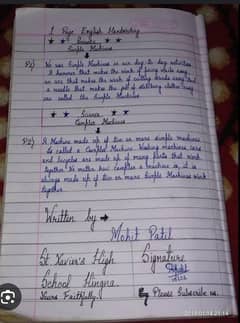 1 Page English Handwriting
★ ★ Science ★ ★
Simple Machines
P1) We use Simple Machine in our day to day activities.
A hammer that makes the work of fixing nails easy,
an axe that makes the work of cutting woods easy and
a needle that makes the job of stitching clothes easy
are called the Simple Machines.
★ ★ Science ★ ★
Complex Machines
P2) A Machine made up of two or more simple machines
is called a Complex Machine. Washing machines, cars
and bicycles are made up of many parts that work
together. No matter how complex a machine is, it is
always made up of two or more Simple Machines work
together.
Written by →
Mohit Patil
St. Xavier's High
School Hingna
Signature
Yours Faithfully
Please Subscribe us.
21:14